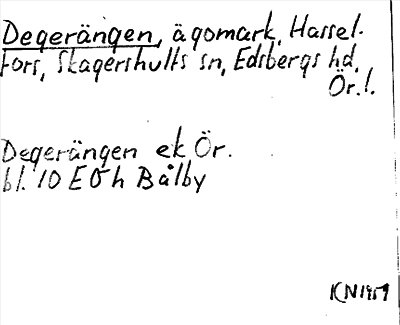 Degerängen, ägomark, Hassel-
fors, Skagershults sn, Edsbergs hd,
Ör. l.
Degerängen ek Ör.
bl. 10 E0h Bålby
KN 1959